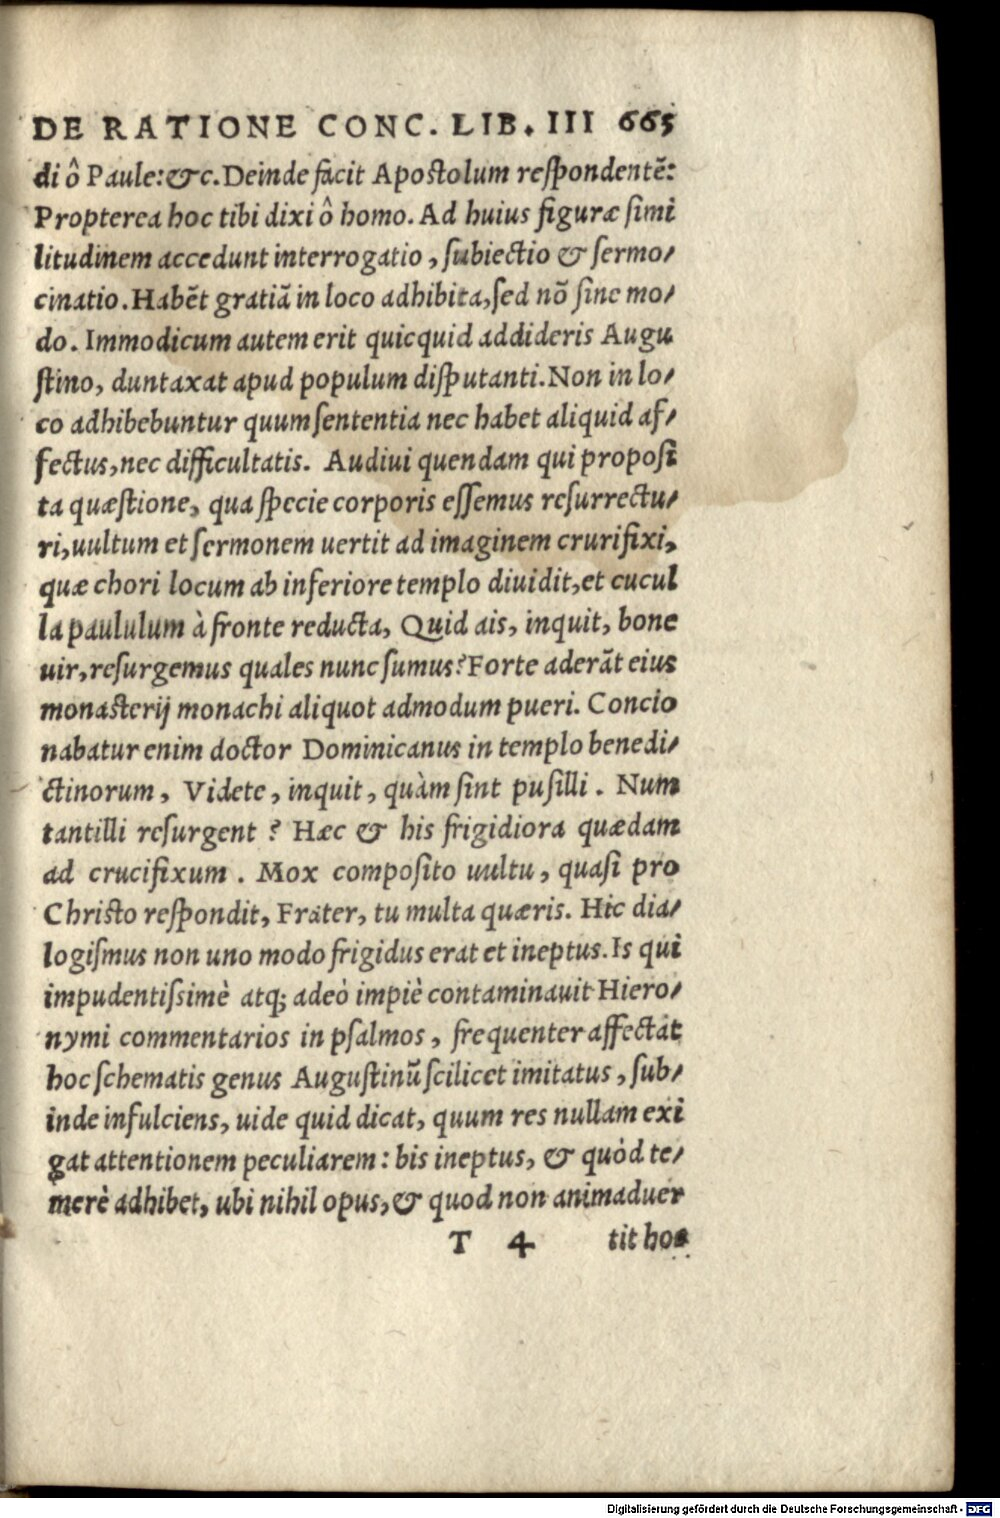 DE RATIONE CONC. LIB. III 665
di ô Paule: &c. Deinde facit Apostolum respondentē:
Propterea hoc tibi dixi ô homo. Ad huius figuræ simi
litudinem accedunt interrogatio, subiectio & sermo/
cinatio. Habēt gratiā in loco adhibita, sed nō sine mo/
do. Immodicum autem erit quicquid addideris Augu
stino, duntaxat apud populum disputanti. Non in lo/
co adhibebuntur quum sententia nec habet aliquid af/
fectus, nec difficultatis. Audiui quendam qui proposi
ta quæstione, qua specie corporis essemus resurrectu/
ri, uultum et sermonem uertit ad imaginem crurifixi,
quæ chori locum ab inferiore templo diuidit, et cucul
la paululum à fronte reducta, Quid ais, inquit, bone
uir, resurgemus quales nunc sumus? Forte aderāt eius
monasterij monachi aliquot admodum pueri. Concio
nabatur enim doctor Dominicanus in templo benedi/
ctinorum, Videte, inquit, quàm sint pusilli. Num
tantilli resurgent? Hæc & his frigidiora quædam
ad crucifixum. Mox composito uultu, quasi pro
Christo respondit, Frater, tu multa quæris. Hic dia/
logismus non uno modo frigidus erat et ineptus. Is qui
impudentissimè atq; adeò impiè contaminauit Hiero/
nymi commentarios in psalmos, frequenter affectat
hoc schematis genus Augustinū scilicet imitatus, sub/
inde infulciens, uide quid dicat, quum res nullam exi
gat attentionem peculiarem: bis ineptus, & quòd te/
merè adhibet, ubi nihil opus, & quod non animaduer
T 4 tit hoc
Digitalisierung gefördert durch die Deutsche Forschungsgemeinschaft - DFG